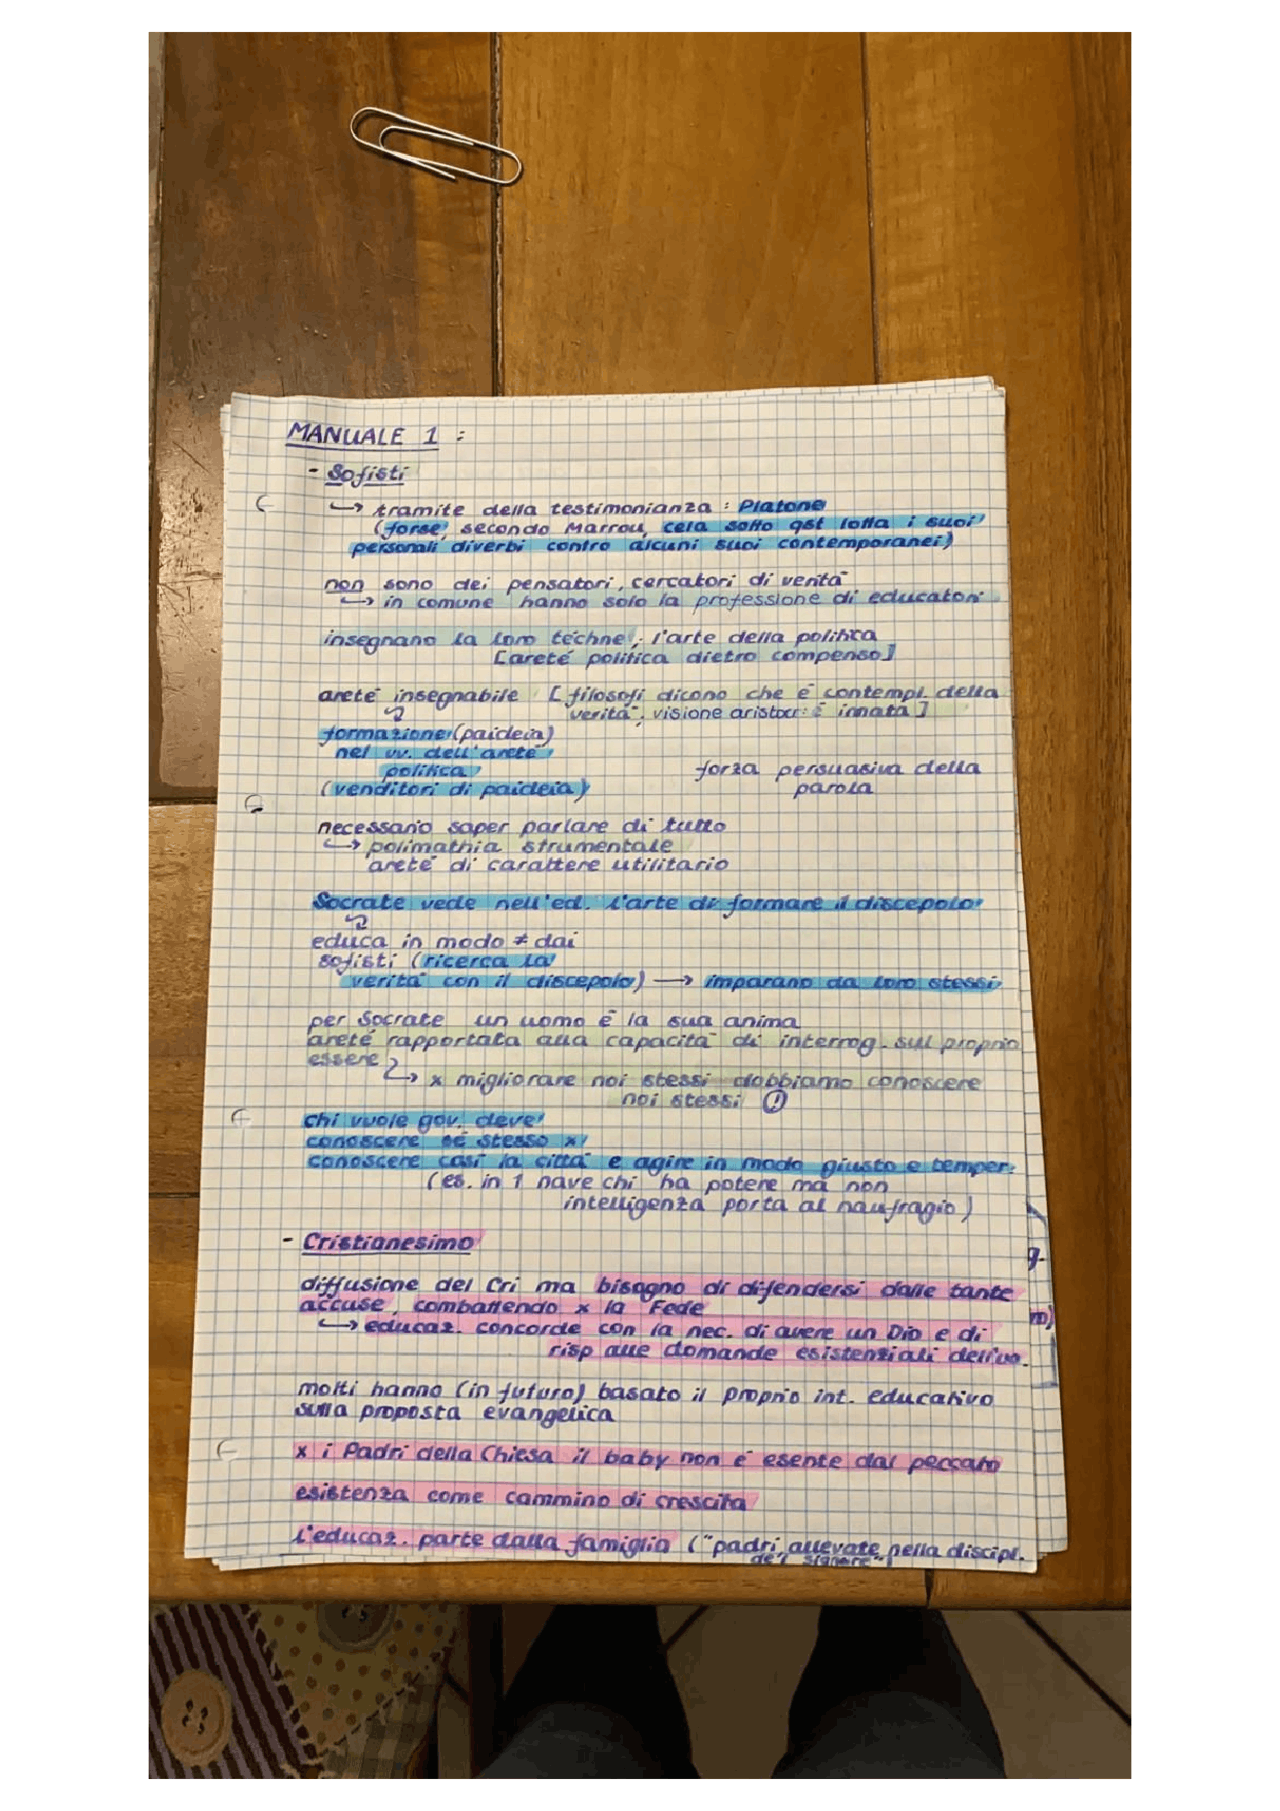 MANUALE 1 :
- Sofisti
↳ tramite della testimonianza : Platone
(forse, secondo Marrou, cela sotto qst lotta i suoi
personali diverbi contro alcuni suoi contemporanei)
non sono dei pensatori, cercatori di verità
↳ in comune hanno solo la professione di educatori
insegnano la loro téchne, l'arte della politica
[areté politica dietro compenso]
areté insegnabile [filosofi dicono che è contempl. della
verità, visione aristocr: è innata]
formazione (paideia)
nel vv. dell'areté
politica
(venditori di paideia)
forza persuasiva della
parola
necessario saper parlare di tutto
↳ polimathia strumentale
areté di carattere utilitario
Socrate vede nell'ed. l'arte di formare il discepolo
educa in modo ≠ dai
sofisti (ricerca la
verità con il discepolo) → imparano da loro stessi
per Socrate un uomo è la sua anima
areté rapportata alla capacità di interrog. sul proprio
essere
↳ x migliorare noi stessi dobbiamo conoscere
noi stessi !
chi vuole gov. deve
conoscere sé stesso x
conoscere così la città e agire in modo giusto e temper.
(es. in 1 nave chi ha potere ma non
intelligenza porta al naufragio)
- Cristianesimo
diffusione del Cri ma bisogno di difendersi dalle tante
accuse, combattendo x la Fede
↳ educaz. concorde con la nec. di avere un Dio e di
risp alle domande esistenziali dell'uo.
molti hanno (in futuro) basato il proprio int. educativo
sulla proposta evangelica
x i Padri della Chiesa il baby non è esente dal peccato
esistenza come cammino di crescita
l'educaz. parte dalla famiglia ("padri, allevate nella discipl.
del signore")